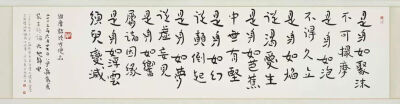 是身如聚沫
不可撮摩
是身如泡
不得久立
是身如焰
從渴愛生
是身如芭蕉
中无有堅
是身如幻
從顛倒起
是身如夢
虛妄見
是身如響
屬諸因緣
是身如浮雲
須臾變滅
維摩詰經方便品